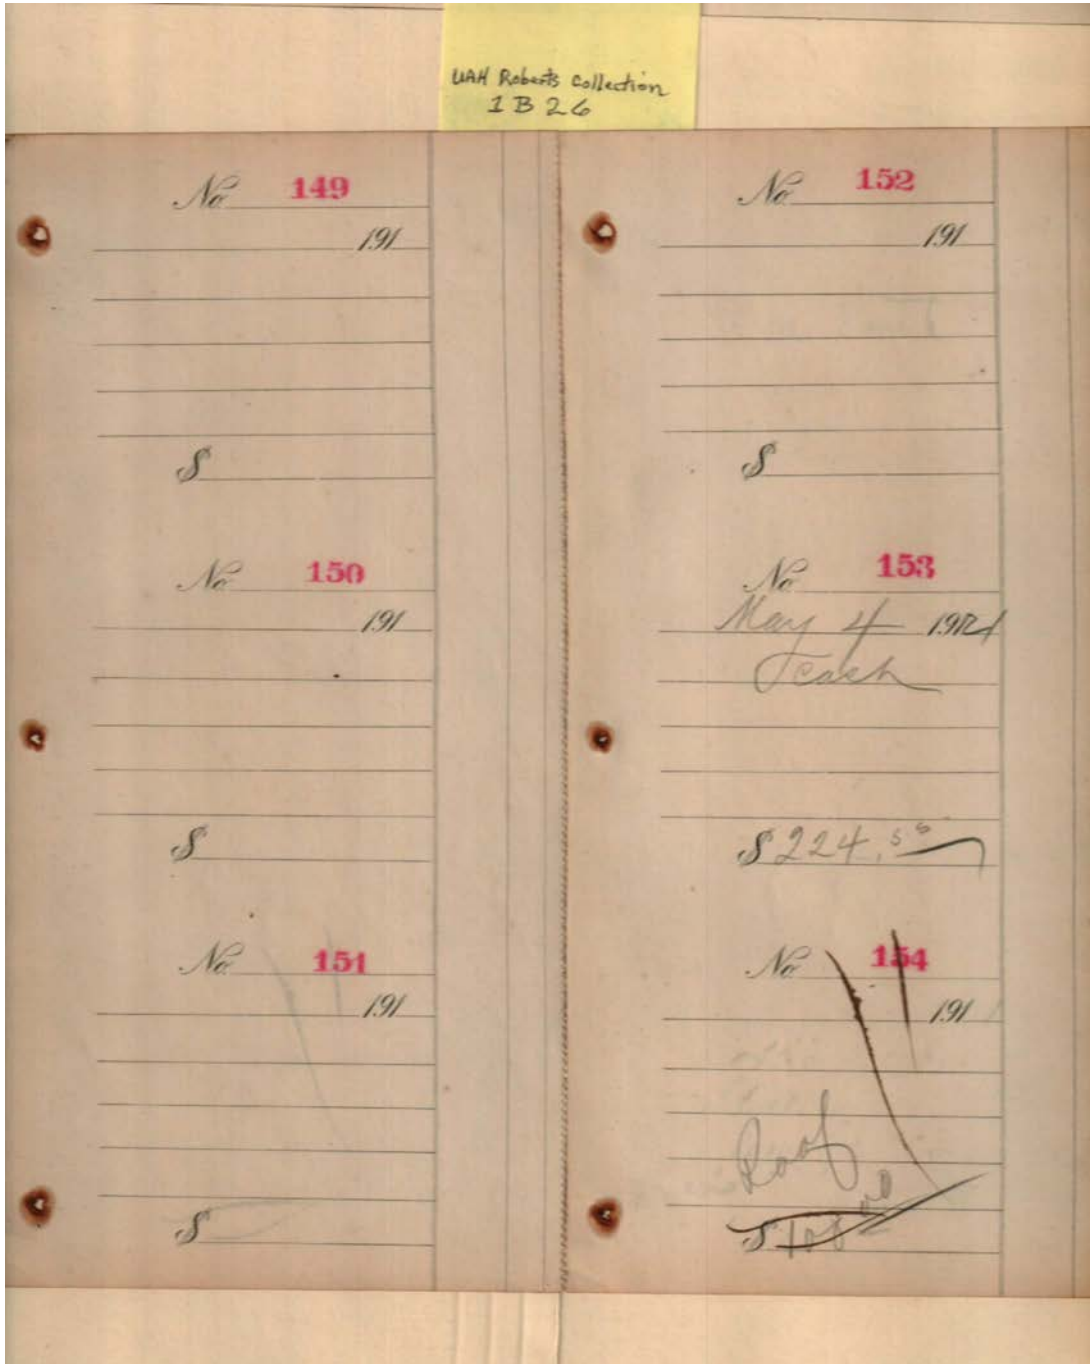 UAH Roberts Collection
1 B 26
No. 149
191
$
No. 150
191
$
No. 151
191
$
No. 152
191
$
No. 153
May 4 191
cash
$ 224.55
No. 154
191
Roof
$ 100 00